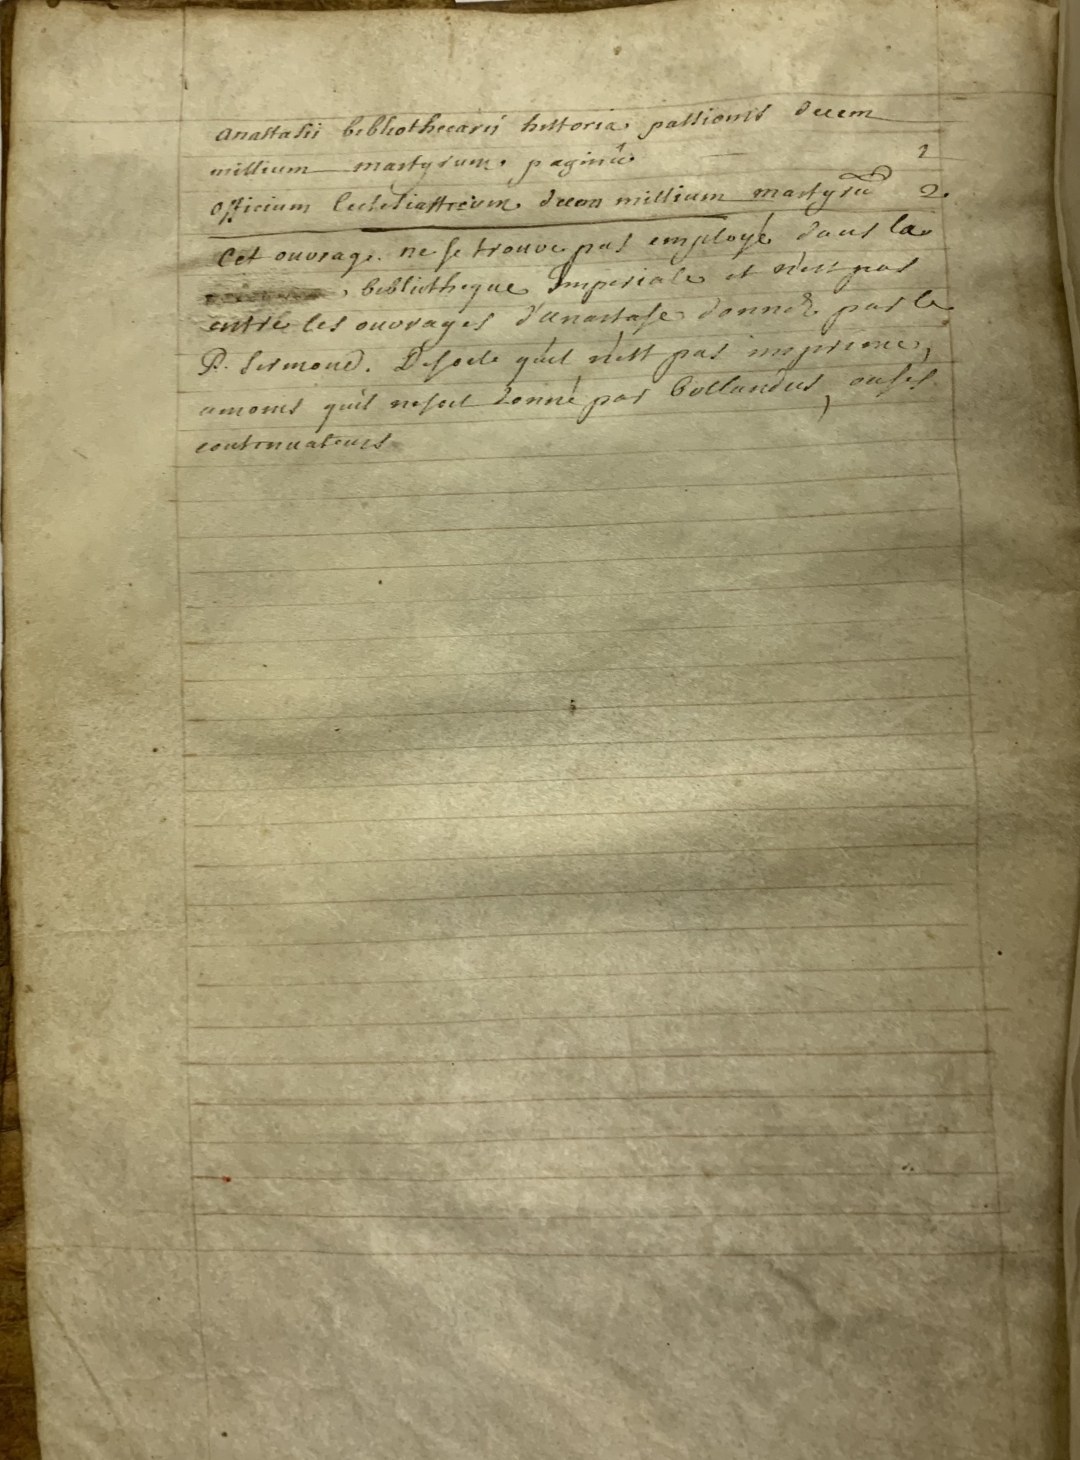 anastasii bibliothecarii historia passionis decem
millium martyrum. paginâ 2
officium Ecclesiasticum decem millium martyrũ 2.
Cet ouvrage ne se trouve pas employé dans la
bibliotheque Imperiale et n'est pas
entre les ouvrages d'anastase donnez par le
P. Sirmond. De sorte qu'il n'est pas imprimé,
amoins qu'il ne soit donné par bollandus, ou ses
continuateurs